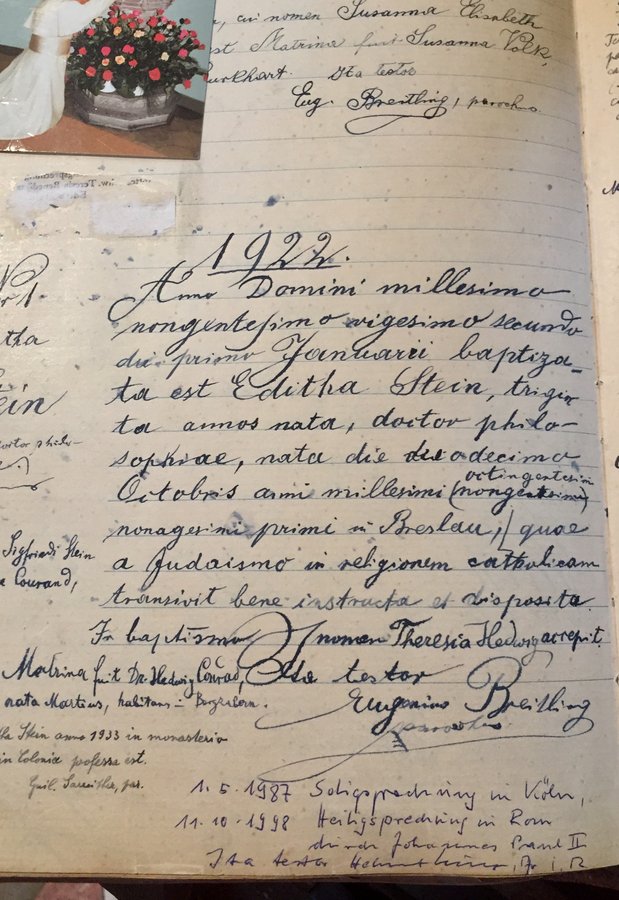 cui nomen Susanna Elisabeth
est Matrina fuit Susanna Volk,
Burkhart. Ita testor
Eug. Breitling, parochus
1922.
Anno Domini millesimo
nongentesimo vigesimo secundo
die primo Januarii baptiza-
ta est Editha Stein, trigin
ta annos nata, doctor philo-
sophiae, nata die duodecimo
octingentesimi
Octobris anni millesimi (nongentesimi)
nonagesimi primi in Breslau, quae
a Judaismo in religionem catholicam
transivit bene instructa et disposita.
In baptismo nomen Theresia Hedwig accepit.
Matrina fuit Dr. Hedwig Conrad, Ita testor
nata Martius, habitans in Bergzabern. Eugenius Breitling
parochus
Nr 1.
tha
ein
doctor philo-
Sigfriedi Stein
Courand,
Stein anno 1933 in monasterio
in Colonia professa est.
par.
1.5.1987 Seligsprechung in Köln,
11.10.1998 Heiligsprechung in Rom
durch Johannes Paul II
Ita testor